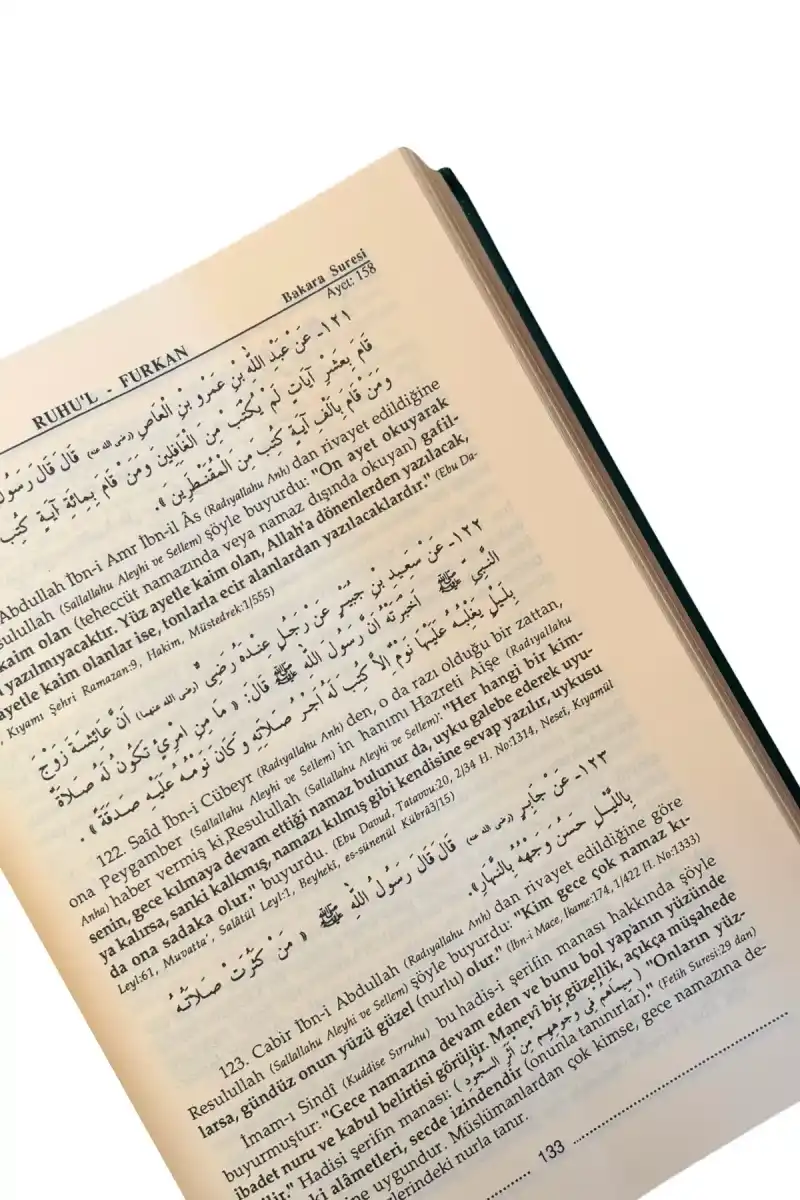 Bakara Suresi
RUHU'L - FURKAN Ayet: 158
١٢١- عَنْ عَبْدِ اللَّهِ بْنِ عَمْرِو بْنِ الْعَاصِ (رضى الله عنه) قَالَ قَالَ رَسُولُ
قَامَ بِعَشْرِ آيَاتٍ لَمْ يُكْتَبْ مِنَ الْغَافِلِينَ وَمَنْ قَامَ بِمِائَةِ آيَةٍ كُتِبَ
وَمَنْ قَامَ بِأَلْفِ آيَةٍ كُتِبَ مِنَ الْمُقَنْطَرِينَ ».
Abdullah İbn-i Amr İbn-il Âs (Radıyallahu Anh) dan rivayet edildiğine
sulullah (Sallallahu Aleyhi ve Sellem) şöyle buyurdu: "On ayet okuyarak
kaim olan (teheccüt namazında veya namaz dışında okuyan) gafil-
yazılmıyacaktır. Yüz ayetle kaim olan, Allah'a dönenlerden yazılacak,
ayetle kaim olanlar ise, tonlarla ecir alanlardan yazılacaklardır." (Ebu Da-
, Kıyamı Şehri Ramazan:9, Hakim, Müstedrek:1/555)
١٢٢- عَنْ سَعِيدِ بْنِ جُبَيْرٍ عَنْ رَجُلٍ عِنْدَهُ رَضِيٍّ (رضى الله عنهما) أَنَّ عَائِشَةَ زَوْجَ
النَّبِيِّ ﷺ أَخْبَرَتْهُ أَنَّ رَسُولَ اللَّهِ ﷺ قَالَ: « مَا مِنِ امْرِئٍ تَكُونُ لَهُ صَلَاةٌ
بِلَيْلٍ يَغْلِبُهُ عَلَيْهَا نَوْمٌ إِلاَّ كُتِبَ لَهُ أَجْرُ صَلَاتِهِ وَ كَانَ نَوْمُهُ عَلَيْهِ صَدَقَةً ».
122. Saîd İbn-i Cübeyr (Radıyallahu Anh) den, o da razı olduğu bir zattan,
ona Peygamber (Sallallahu Aleyhi ve Sellem) in hanımı Hazreti Aişe (Radıyallahu
Anha) haber vermiş ki,Resulullah (Sallallahu Aleyhi ve Sellem): "Her hangi bir kim-
senin, gece kılmaya devam ettiği namaz bulunur da, uyku galebe ederek uyu-
ya kalırsa, sanki kalkmış, namazı kılmış gibi kendisine sevap yazılır, uykusu
da ona sadaka olur." buyurdu. (Ebu Davud, Tatavvu:20, 2/34 H. No:1314, Neseî, Kıyamül
Leyl:61, Muvatta', Salâtül Leyl:1, Beyhekî, es-sünenül Kübrâ3/15)
١٢٣- عَنْ جَابِرٍ (رضى الله عنه) قَالَ قَالَ رَسُولُ اللَّهِ ﷺ « مَنْ كَثُرَتْ صَلَاتُهُ
بِاللَّيْلِ حَسُنَ وَجْهُهُ بِالنَّهَارِ».
123. Cabir İbn-i Abdullah (Radıyallahu Anh) dan rivayet edildiğine göre
Resulullah (Sallallahu Aleyhi ve Sellem) şöyle buyurdu: "Kim gece çok namaz kı-
larsa, gündüz onun yüzü güzel (nurlu) olur." (İbn-i Mace, İkame:174, 1/422 H. No:1333)
İmam-ı Sindî (Kuddise Sırruhu) bu hadis-i şerifin manası hakkında şöyle
buyurmuştur: "Gece namazına devam eden ve bunu bol yapanın yüzünde
ibadet nuru ve kabul belirtisi görülür. Manevî bir güzellik, açıkça müşahede
Hadisi şerifin manası: ( سِيمَاهُمْ فِي وُجُوهِهِمْ مِنْ أَثَرِ السُّجُودِ ) "Onların yüz-
ki alâmetleri, secde izindendir (onunla tanınırlar)." (Fetih Suresi:29 dan)
ine uygundur. Müslümanlardan çok kimse, gece namazına de-
lerindeki nurla tanır.
133